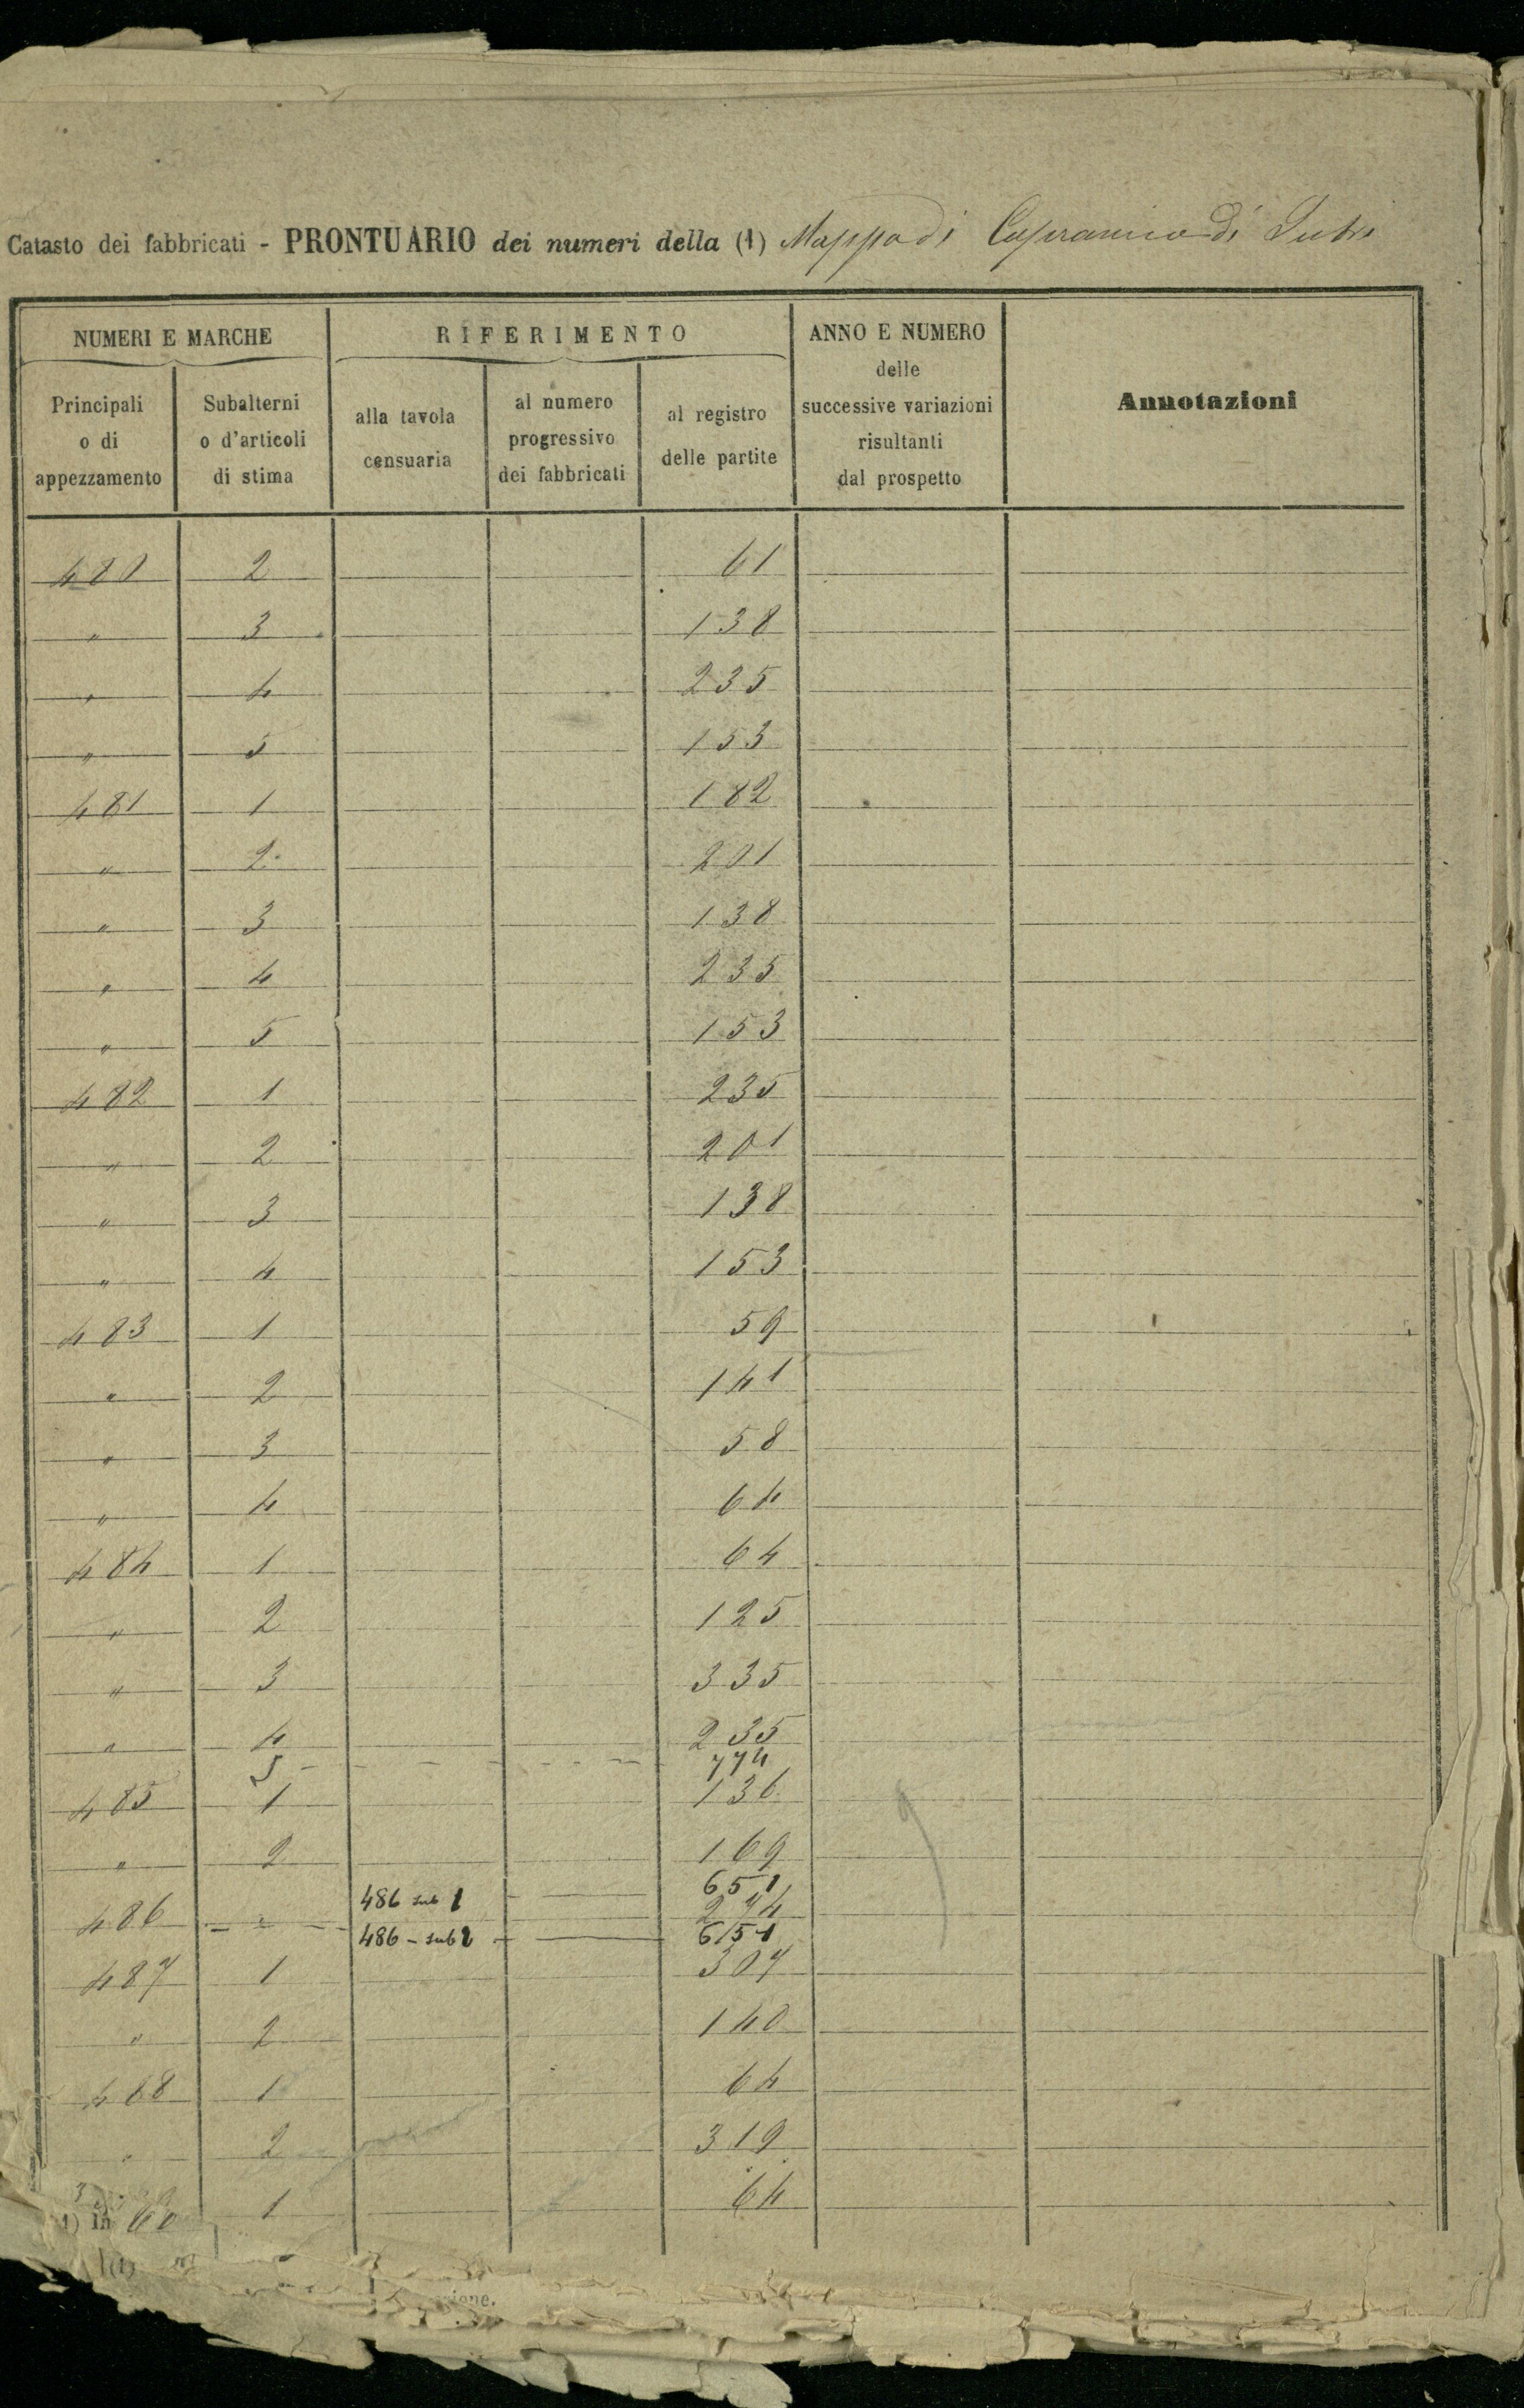 Catasto dei fabbricati - PRONTUARIO dei numeri della (1) Mappa di Capranica di Sutri
NUMERI E MARCHE
RIFERIMENTO
ANNO E NUMERO
delle
successive variazioni
risultanti
dal prospetto
Annotazioni
Principali
o di
appezzamento
Subalterni
o d'articoli
di stima
alla tavola
censuaria
al numero
progressivo
dei fabbricati
al registro
delle partite
480 2 61
" 3 138
" 4 235
" 5 153
481 1 182
" 2 201
" 3 138
" 4 235
" 5 153
482 1 235
" 2 201
" 3 138
" 4 153
483 1 59
" 2 141
" 3 58
" 4 64
484 1 64
" 2 125
" 3 335
" 4 235
5 774
485 1 136
" 2 169
486 sub 1 651
486 " 274
486 - sub 2 651
487 1 307
" 2 140
488 1 64
" 2 319
1 64
(1) in
(1)
zione.